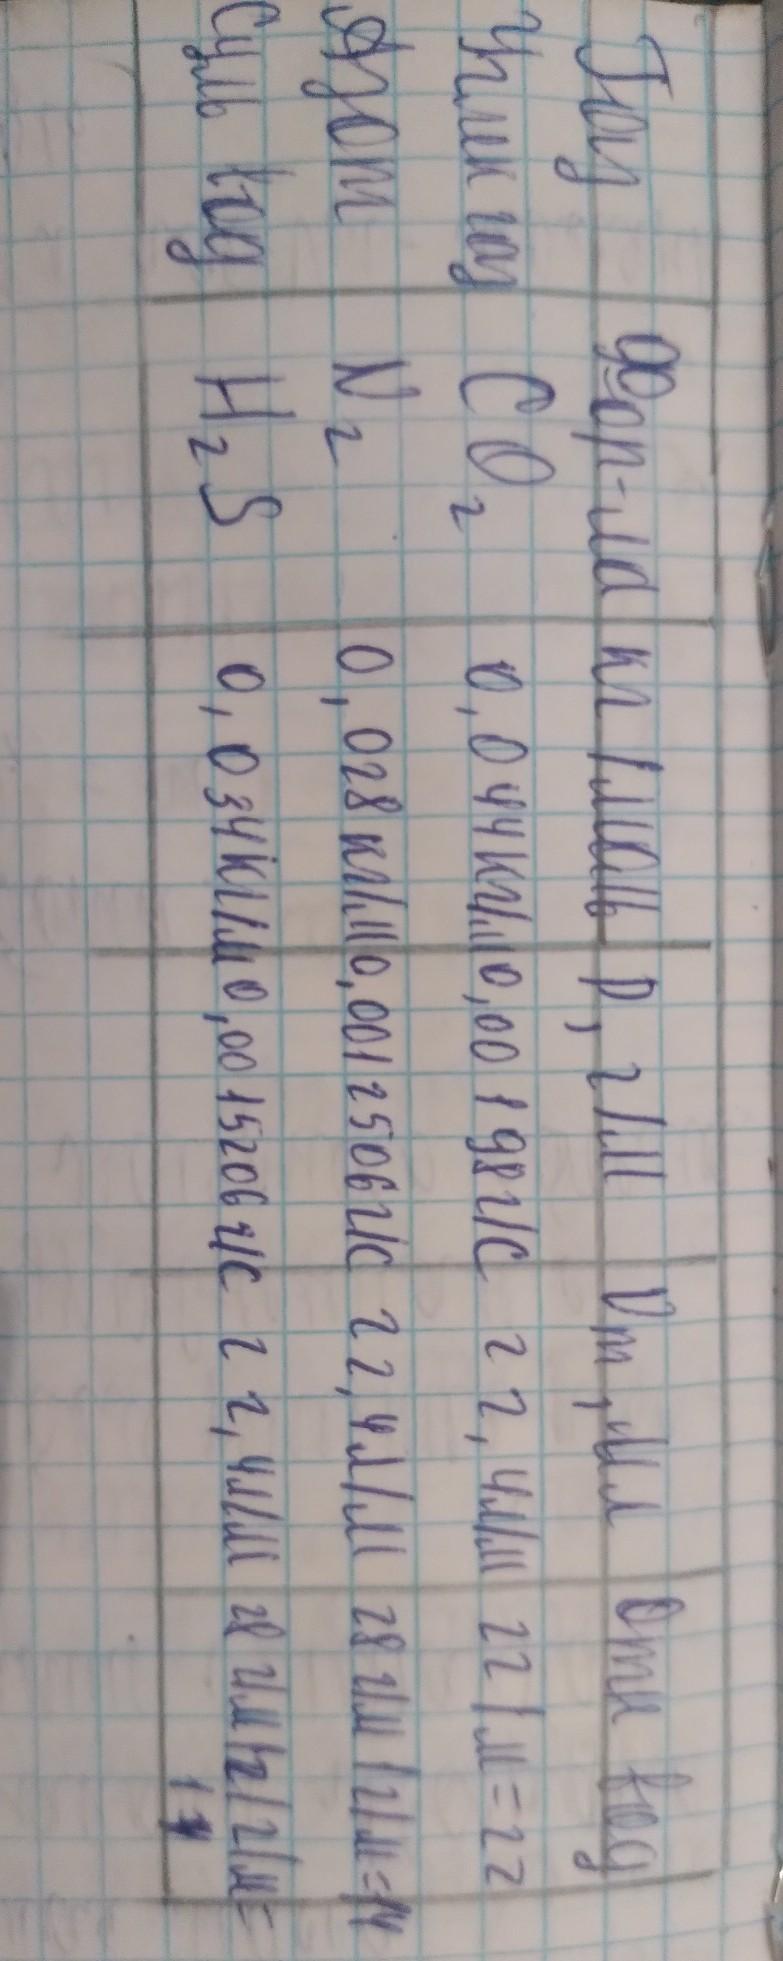 Газ Фор-ла кг/моль р, г/м Vm, мл Отн вод
Углек газ CO2 0,044кг/м 0,00198г/с 22,4л/м 22/м=22
Азот N2 0,028кг/м 0,0012506г/с 22,4л/м 28г/м/2г/м=14
Суль вод H2S 0,034кг/м 0,0015206г/с 22,4л/м 28г/м/2г/м=
17